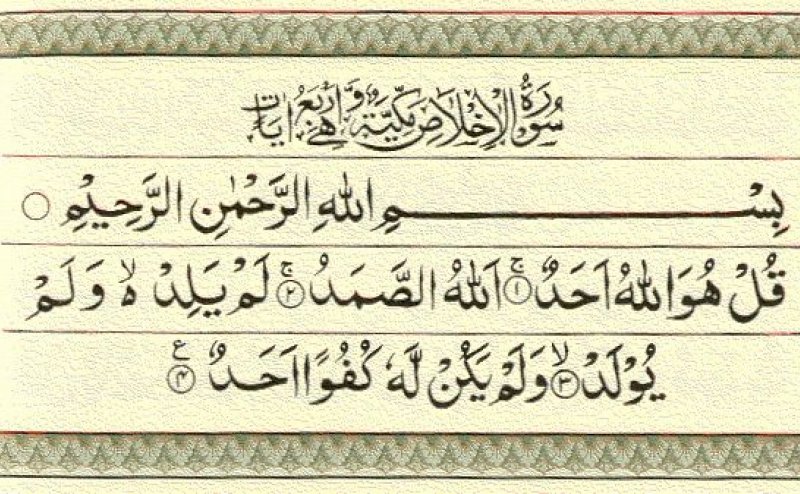 سُورَةُ الْاِخْلَاصِ مَكِّيَّةٌ وَّهِيَ اَرْبَعُ اٰيَاتٍ
بِسْمِ اللّٰهِ الرَّحْمٰنِ الرَّحِيْمِ
قُلْ هُوَ اللّٰهُ اَحَدٌ ۚ ﴿١﴾ اَللّٰهُ الصَّمَدُ ۚ ﴿٢﴾ لَمْ يَلِدْ ەۙ وَلَمْ
يُوْلَدْ ۙ ﴿٣﴾ وَلَمْ يَكُنْ لَّهٗ كُفُوًا اَحَدٌ ࣖ ﴿٤﴾